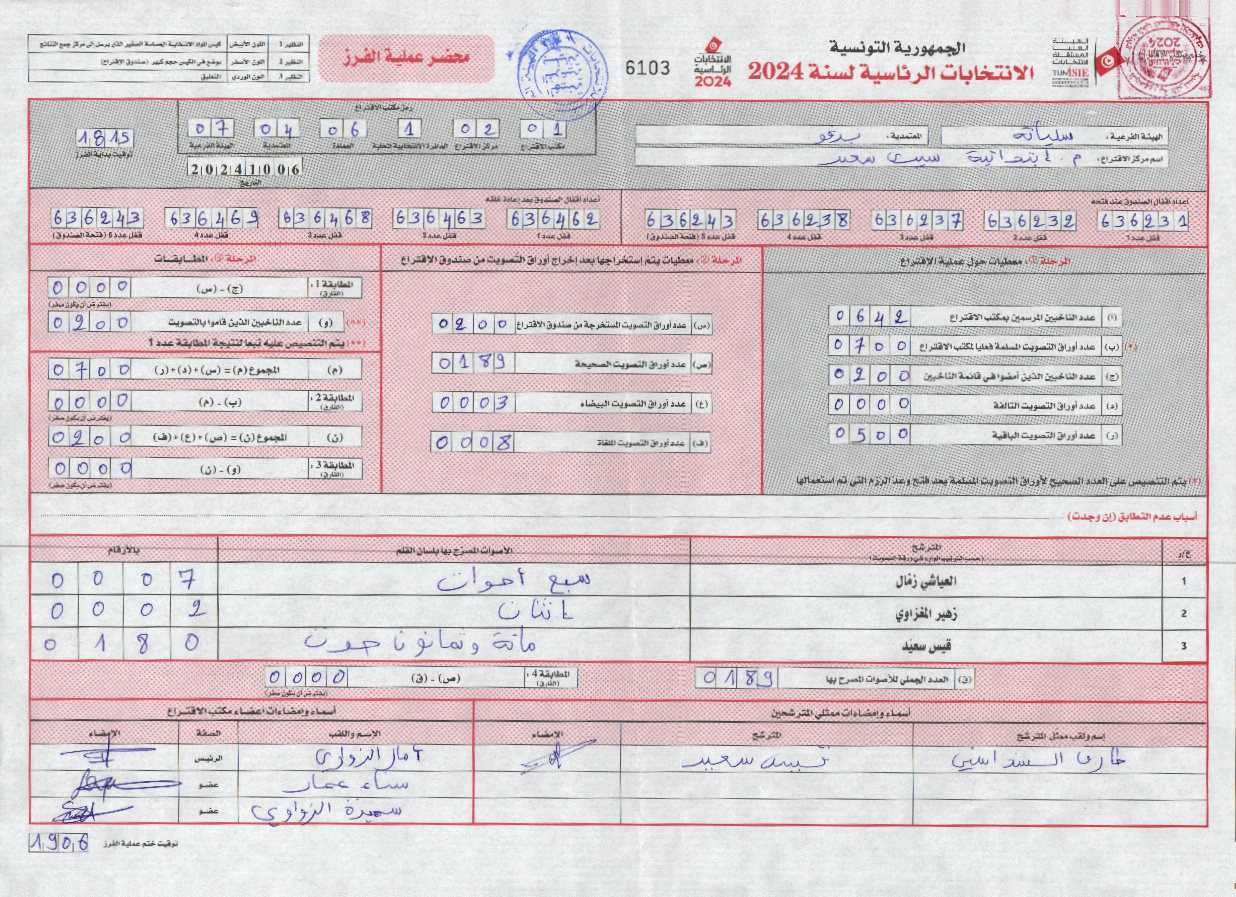 الجمهورية التونسية
الانتخابات الرئاسية لسنة 2024
الهيئة
العليا
المستقلة
للانتخابات
TUNISIE
الانتخابات
الرئاسية
2024
6103
محضر عملية الفرز
النظير 1 اللون الأبيض كيس المواد الانتخابية الصامة الصغير الذي يرسل إلى مركز جمع النتائج
النظير 2 اللون الأصفر يوضع في الكيس حجم كبير (صندوق الاقتراع)
النظير 3 اللون الوردي التعليق
الهيئة الفرعية : سليانة المعتمدية :
اسم مركز الاقتراع : م. ابتدائية سيدي سعيد
رمز مكتب الاقتراع
01 02 1 06 04 07
مكتب الاقتراع مركز الاقتراع الدائرة الانتخابية المحلية العمادة المعتمدية الهيئة الفرعية
20241006
التاريخ
1815
توقيت بداية الفرز
أعداد أقفال الصندوق عند فتحه
636231 636232 636237 636238 636243
قفل عدد 1 قفل عدد 2 قفل عدد 3 قفل عدد 4 قفل عدد 5 (فتحة الصندوق)
أعداد أقفال الصندوق بعد إعادة غلقه
636462 636463 636468 636469 636243
قفل عدد 1 قفل عدد 2 قفل عدد 3 قفل عدد 4 قفل عدد 5 (فتحة الصندوق)
المرحلة ①: معطيات حول عملية الاقتراع
(ا) عدد الناخبين المرسمين بمكتب الاقتراع 0642
(*) (ب) عدد أوراق التصويت المسلمة فعليا لمكتب الاقتراع 0700
(ج) عدد الناخبين الذين أمضوا في قائمة الناخبين 0200
(د) عدد أوراق التصويت التالفة 0000
(ر) عدد أوراق التصويت الباقية 0500
(*) يتم التنصيص على العدد الصحيح لأوراق التصويت المسلمة بعد فتح وعد الرزم التي تم استعمالها
المرحلة ②: معطيات يتم إستخراجها بعد إخراج أوراق التصويت من صندوق الاقتراع
(س) عدد أوراق التصويت المستخرجة من صندوق الاقتراع 0200
(ص) عدد أوراق التصويت الصحيحة 0189
(ع) عدد أوراق التصويت البيضاء 0003
(ف) عدد أوراق التصويت الملغاة 0008
المرحلة ③: المطابقات
المطابقة 1 : (الفارق) (ج) - (س) 0000
(يفترض أن يكون صفر)
(**) (و) عدد الناخبين الذين قاموا بالتصويت 0200
(**) يتم التنصيص عليه تبعا لنتيجة المطابقة عدد 1
(م) المجموع (م) = (س) + (د) + (ر) 0700
المطابقة 2 : (الفارق) (ب) - (م) 0000
(يفترض أن يكون صفر)
(ن) المجموع (ن) = (ص) + (ع) + (ف) 0200
المطابقة 3 : (الفارق) (و) - (ن) 0000
(يفترض أن يكون صفر)
أسباب عدم التطابق (إن وجدت)
ع/د المترشح الأصوات المصرح بها بلسان القلم بالأرقام
(حسب الترتيب الوارد في ورقة التصويت)
1 العياشي زمّال سبع أصوات 0007
2 زهير المغزاوي اثنان 0002
3 قيس سعيّد مائة وثمانون صوت 0180
(ق) العدد الجملي للأصوات المصرح بها 0189
المطابقة 4 : (الفارق) (ص) - (ق) 0000
(يفترض أن يكون صفر)
أسماء وإمضاءات ممثلي المترشحين
إسم ولقب ممثل المترشح المترشح الإمضاء
قيس سعيد
أسماء وإمضاءات أعضاء مكتب الاقتراع
الإسم واللقب الصفة الإمضاء
آمال الزواري الرئيس
سناء عمار عضو
سميرة الزواوي عضو
توقيت ختم عملية الفرز 1906